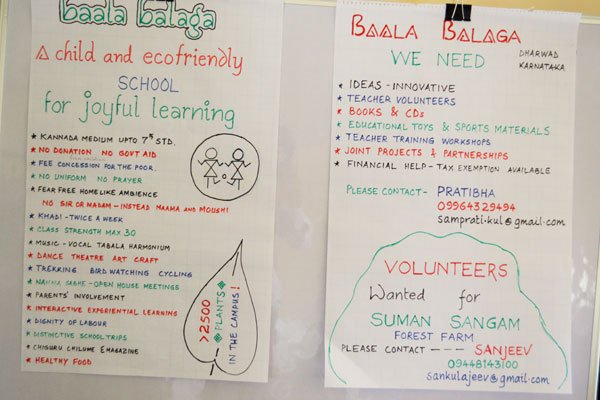 baala balaga
A child and ecofriendly
SCHOOL
for joyful learning
* KANNADA MEDIUM UPTO 7th STD.
* NO DONATION NO GOVT AID
* FEE CONCESSION FOR THE POOR.
* NO UNIFORM NO PRAYER
* FEAR FREE HOMELIKE AMBIENCE
NO SIR OR MADAM - INSTEAD MAAMA AND MOUSHI
* KHADI - TWICE A WEEK
* CLASS STRENGTH MAX 30
* MUSIC - VOCAL TABALA HARMONIUM
* DANCE THEATRE ART CRAFT
* TREKKING BIRD WATCHING CYCLING
* SABHE - OPEN HOUSE MEETINGS
* PARENTS' INVOLVEMENT
* INTERACTIVE EXPERIENTIAL LEARNING
* DIGNITY OF LABOUR
* DISTINCTIVE SCHOOL TRIPS
* CHIGURU CHILUME EMAGAZINE
* HEALTHY FOOD
>2500
PLANTS
IN THE CAMPUS!
BAALA BALAGA
WE NEED
DHARWAD
KARNATAKA
* IDEAS - INNOVATIVE
* TEACHER VOLUNTEERS
* BOOKS & CDs
* EDUCATIONAL TOYS & SPORTS MATERIALS
* TEACHER TRAINING WORKSHOPS
* JOINT PROJECTS & PARTNERSHIPS
* FINANCIAL HELP - TAX EXEMPTION AVAILABLE
PLEASE CONTACT - PRATIBHA
09964329494
samprati.kul@gmail.com
VOLUNTEERS
Wanted for
SUMAN SANGAM
FOREST FARM
PLEASE CONTACT --- SANJEEV
09448143100
sankulajeev@gmail.com